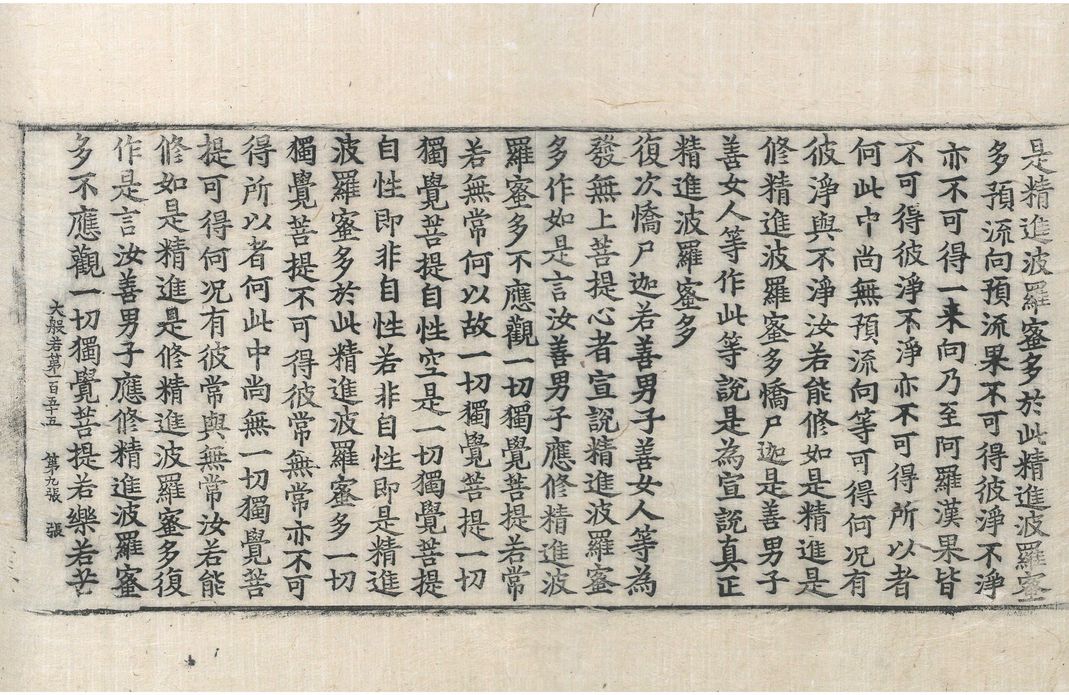 是精進波羅蜜多於此精進波羅蜜
多預流向預流果不可得彼淨不淨
亦不可得一来向乃至阿羅漢果皆
不可得彼淨不淨亦不可得所以者
何此中尚無預流向等可得何况有
彼淨與不淨汝若能修如是精進是
修精進波羅蜜多憍尸迦是善男子
善女人等作此等說是為宣說真正
精進波羅蜜多
復次憍尸迦若善男子善女人等為
發無上菩提心者宣說精進波羅蜜
多作如是言汝善男子應修精進波
羅蜜多不應觀一切獨覺菩提若常
若無常何以故一切獨覺菩提一切
獨覺菩提自性空是一切獨覺菩提
自性即非自性若非自性即是精進
波羅蜜多於此精進波羅蜜多一切
獨覺菩提不可得彼常無常亦不可
得所以者何此中尚無一切獨覺菩
提可得何况有彼常與無常汝若能
修如是精進是修精進波羅蜜多復
作是言汝善男子應修精進波羅蜜
多不應觀一切獨覺菩提若樂若苦
大般若第一百五十五 第九張 張